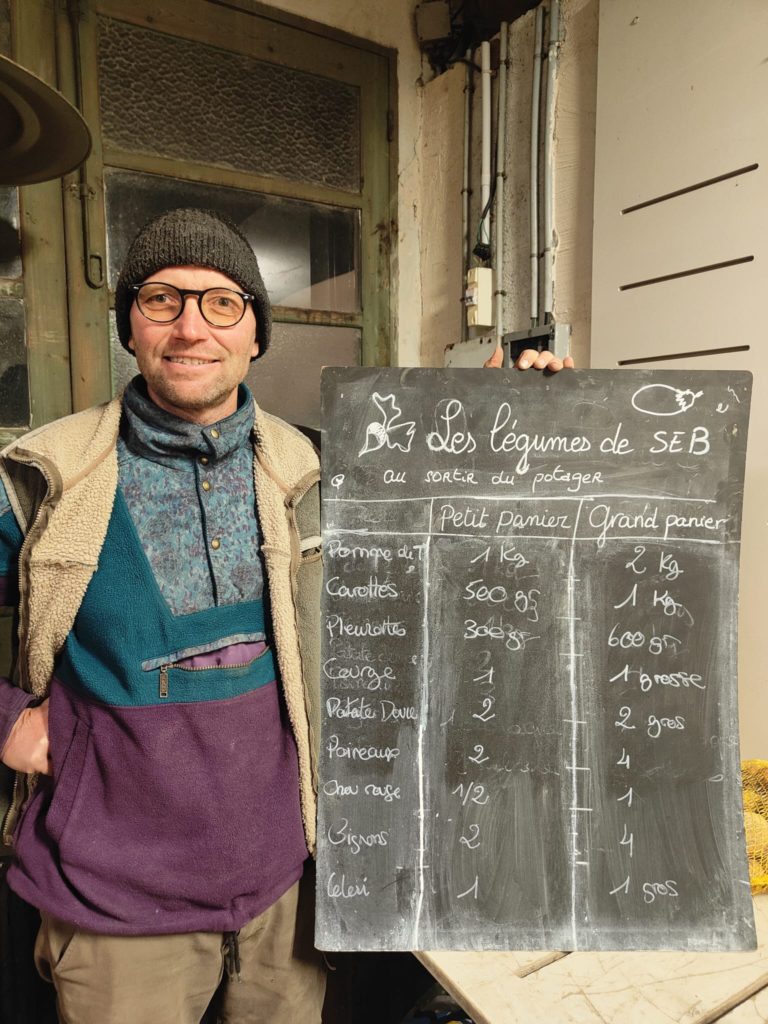 Les légumes de SEB
au sortir du potager
Petit panier Grand panier
Pomme de T 1 Kg 2 Kg
Carottes 500 gr 1 Kg
Pleurottes 300 gr 600 gr
Courge 1 1 grosse
Patate Douce 2 2 gros
Poireaux 2 4
Chou rouge 1/2 1
Oignons 2 4
Celeri 1 1 gros